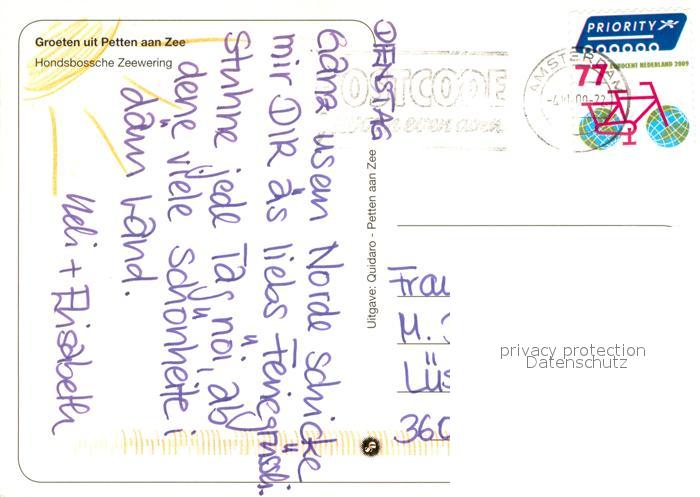 Groeten uit Petten aan Zee
Hondsbossche Zeewering
DIENSTAG
Gänz usem Norde schicke
mir DIR äs liebs Feriegrüessli.
Stuhne jede Tag nöi, ab
dene viele Schönheite i
däm Länd.
Ueli + Elisabeth
Uitgave: Quidaro - Petten aan Zee
POSTCODE
PRIORITY
77
EUROCENT NEDERLAND 2009
AMSTERDAM
Frau
M.
Lüs
360
privacy protection
Datenschutz